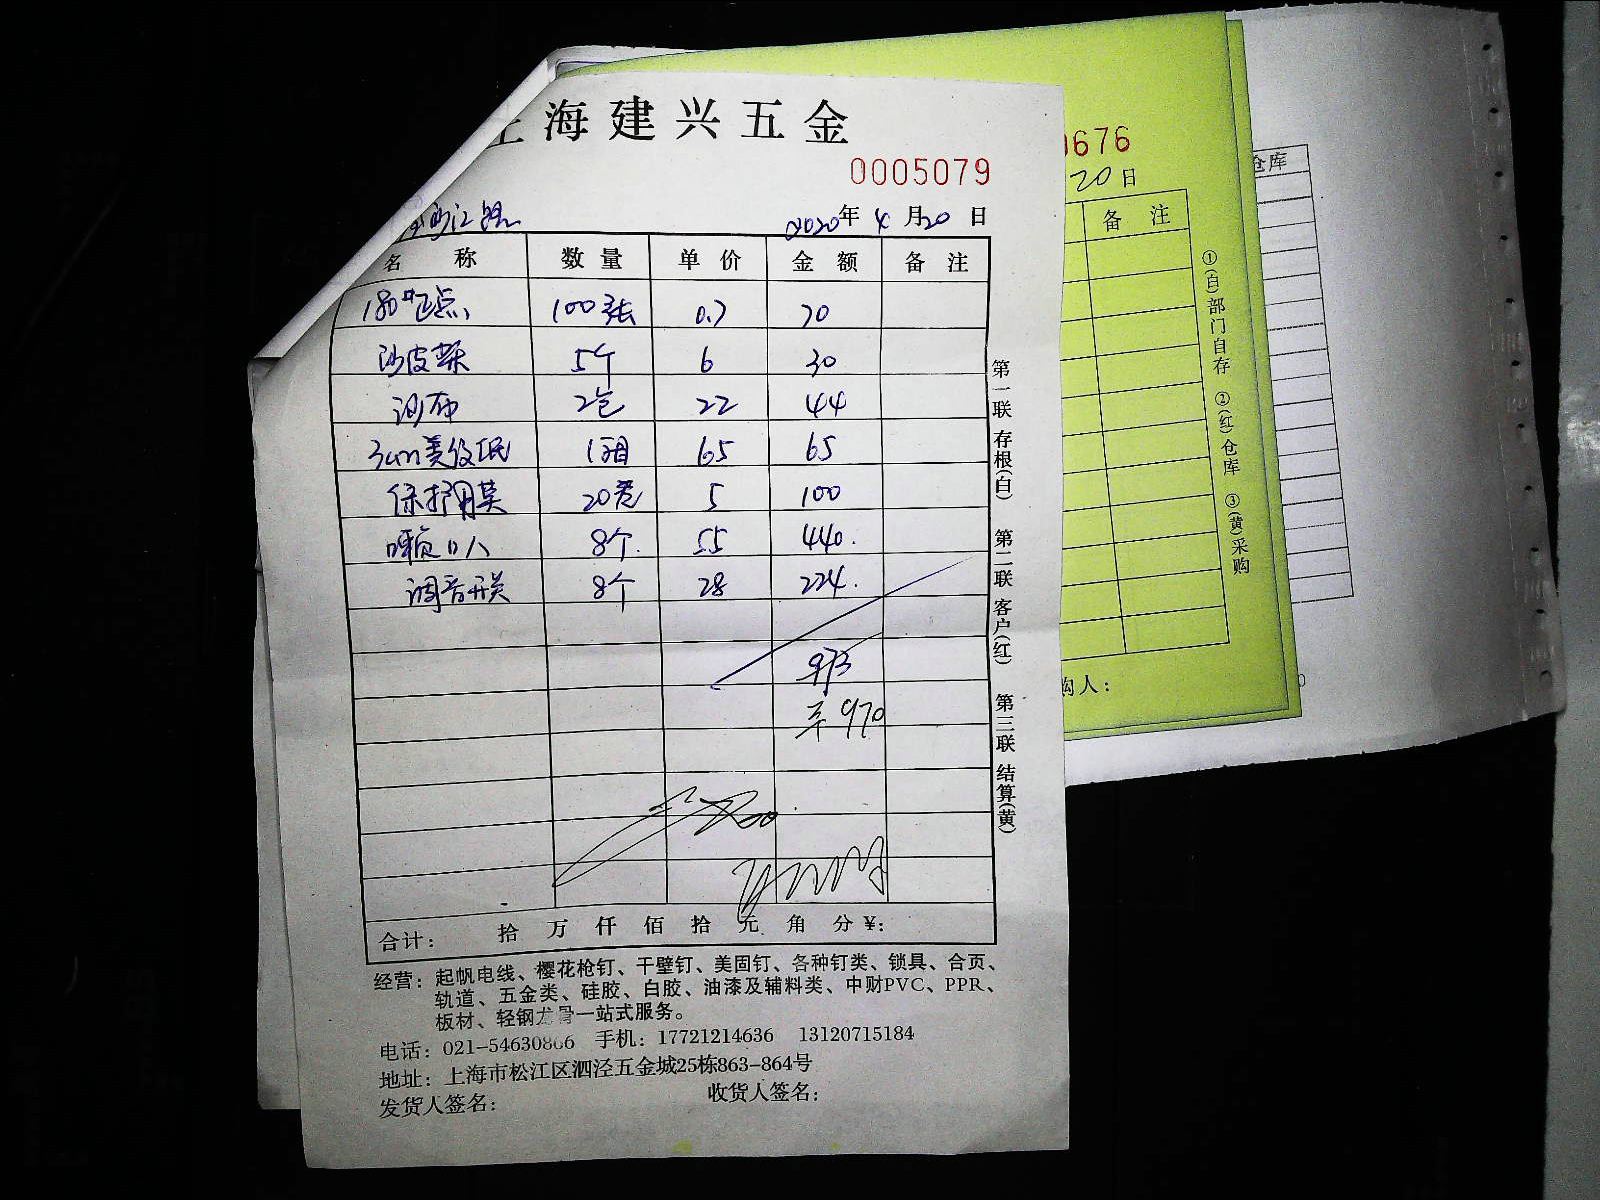 上海建兴五金
0005079
2020年4月20日
名称 数量 单价 金额 备注
100张 0.7 70
5个 6 30
砂布 2包 22 44
1箱 65 65
保护膜 20卷 5 100
8个 55 440.
调音开关 8个 28 224.
973
970
合计: 拾 万 仟 佰 拾 元 角 分 ¥:
经营: 起帆电线、樱花枪钉、干壁钉、美固钉、各种钉类、锁具、合页、
轨道、五金类、硅胶、白胶、油漆及辅料类、中财PVC、PPR、
板材、轻钢龙骨一站式服务。
电话: 021-54630806 手机: 17721214636 13120715184
地址: 上海市松江区泗泾五金城25栋863-864号
发货人签名: 收货人签名:
第一联 存根(白) 第二联 客户(红) 第三联 结算(黄)
0676
20日
备注
①(白)部门自存 ②(红)仓库 ③(黄)采购
购人:
仓库